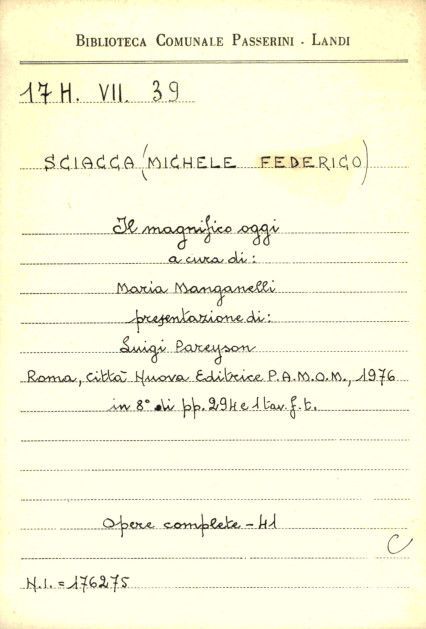 BIBLIOTECA COMUNALE PASSERINI - LANDI
17 H. VII. 39
SCIACCA (MICHELE FEDERICO)
Il magnifico oggi
a cura di:
Maria Manganelli
presentazione di:
Luigi Pareyson
Roma, Città Nuova Editrice P.A.M.O.M., 1976
in 8° di pp. 294 e 1 tav. f. t.
Opere complete - 41
C
N.I. = 176275